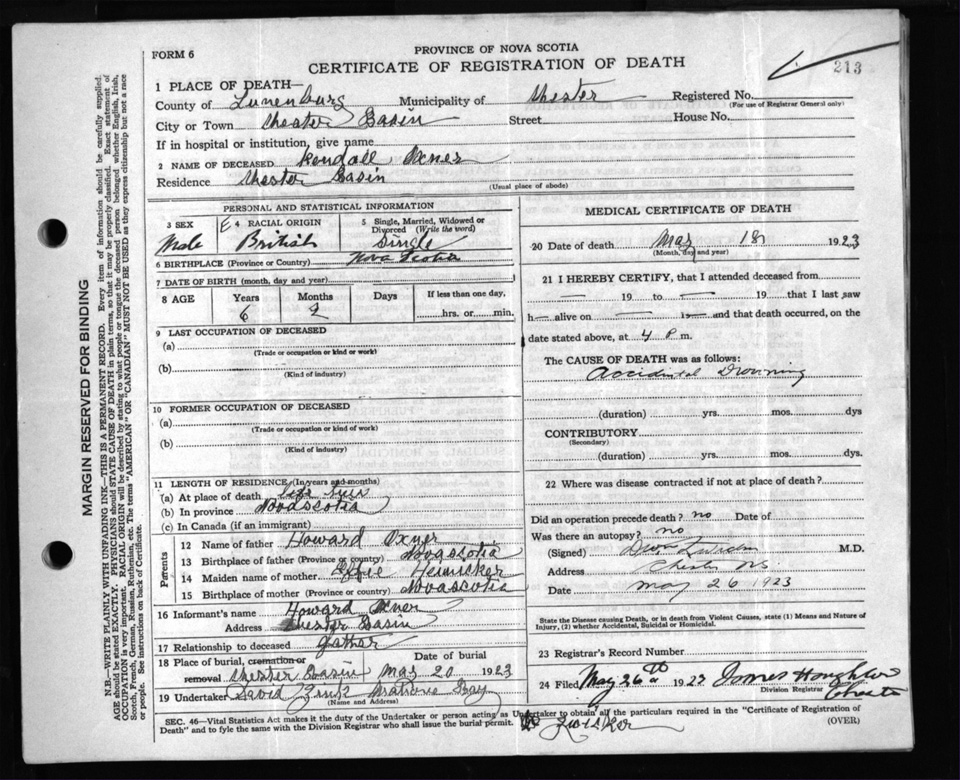 PROVINCE OF NOVA SCOTIA
FORM 6
CERTIFICATE OF REGISTRATION OF DEATH
213
1 PLACE OF DEATH—
County of Lunenburg Municipality of Chester Registered No.
(For use of Registrar General only)
City or Town Chester Basin Street House No.
If in hospital or institution, give name
2 NAME OF DECEASED Kendall Oxner
Residence Chester Basin
(Usual place of abode)
PERSONAL AND STATISTICAL INFORMATION
3 SEX Male
E 4 RACIAL ORIGIN British
5 Single, Married, Widowed or Divorced (Write the word) Single
6 BIRTHPLACE (Province or Country) Nova Scotia
7 DATE OF BIRTH (month, day and year)
8 AGE Years Months Days If less than one day,
6 2 hrs. or min.
9 LAST OCCUPATION OF DECEASED
(a)
(Trade or occupation or kind or work)
(b)
(Kind of industry)
10 FORMER OCCUPATION OF DECEASED
(a)
(Trade or occupation or kind of work)
(b)
(Kind of industry)
11 LENGTH OF RESIDENCE (In years and months)
(a) At place of death life
(b) In province Novascotia
(c) In Canada (if an immigrant)
Parents
12 Name of father Howard Oxner
13 Birthplace of father (Province or country) Novascotia
14 Maiden name of mother Effie
15 Birthplace of mother (Province or country) Novascotia
16 Informant's name Howard Oxner
Address Chester Basin
17 Relationship to deceased Father
18 Place of burial, cremation or Date of burial
removal Chester Basin May 20 1923
19 Undertaker David Zink
(Name and Address)
MEDICAL CERTIFICATE OF DEATH
20 Date of death May 18 1923
(Month, day and year)
21 I HEREBY CERTIFY, that I attended deceased from
— 19 to — 19 that I last saw
h— alive on — 19— and that death occurred, on the
date stated above, at 4 P m.
The CAUSE OF DEATH was as follows:
Accidental Drowning
(duration) yrs. mos. dys
CONTRIBUTORY
(Secondary)
(duration) yrs. mos. dys.
22 Where was disease contracted if not at place of death?
Did an operation precede death? no Date of
Was there an autopsy? no
(Signed) M.D.
Address Chester NS
Date May 26 1923
State the Disease causing Death, or in death from Violent Causes, state (1) Means and Nature of
Injury, (2) whether Accidental, Suicidal or Homicidal.
23 Registrar's Record Number
24 Filed May 26th 192 James
Division Registrar
Chester
SEC. 46—Vital Statistics Act makes it the duty of the Undertaker or person acting as Undertaker to obtain all the particulars required in the "Certificate of Registration of
Death" and to fyle the same with the Division Registrar who shall issue the burial permit.
(OVER)
MARGIN RESERVED FOR BINDING
N.B.—WRITE PLAINLY WITH UNFADING INK—THIS IS A PERMANENT RECORD. Every item of information should be carefully supplied.
AGE should be stated EXACTLY. PHYSICIANS should STATE CAUSE OF DEATH in plain terms, so that it may be properly classified. Exact statement of
OCCUPATION is very important. RACIAL ORIGIN will be described by stating to what people or tongue the deceased person belonged whether English, Irish,
Scotch, French, German, Russian, Ruthenian, etc. The terms "AMERICAN" OR "CANADIAN" MUST NOT BE USED as they express citizenship but not a race
or people. See instructions on back of Certificate.